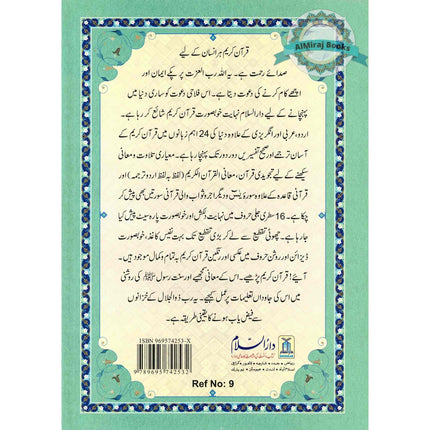 AlMiraj Books
قرآن کریم ہر انسان کے لیے
صدائے رحمت ہے۔ یہ اللہ رب العزت پر پکے ایمان اور
اچھے کام کرنے کی دعوت دیتا ہے۔ اس فلاحی دعوت کو ساری دنیا میں
پہنچانے کے لیے دارالسلام نہایت خوبصورت قرآن کریم شائع کر رہا ہے۔
اردو، عربی اور انگریزی کے علاوہ دنیا کی 24 اہم زبانوں میں قرآن کریم کے
آسان ترجمے اور صحیح تفسیریں دور دور تک پہنچا رہا ہے۔ معیاری تلاوت و معانی
سیکھنے کے لیے تجویدی قرآن، معانی القرآن الکریم (لفظ بہ لفظ اردو ترجمہ) اور
قرآنی قاعدہ کے علاوہ سورۂ یٰسٓ و دیگر اجر و ثواب والی قرآنی سورتیں بھی پیش کر
چکا ہے۔ 16 سطری جلی حروف میں نہایت دلکش اور خوبصورت پارہ سیٹ پیش کیا
جا رہا ہے۔ چھوٹی تقطیع سے لے کر بڑی تقطیع تک بہت نفیس کاغذ، خوبصورت
ڈیزائن اور روشن حروف میں عکسی اور رنگین قرآن کریم بہ تمام و کمال موجود ہیں۔
آیئے! قرآن کریم پڑھیے۔ اس کے معانی سمجھیے اور سنت رسول ﷺ کی روشنی
میں اس کی جاوداں تعلیمات پر عمل کیجیے۔ یہ رب ذوالجلال کے خزانوں
سے فیض یاب ہونے کا یقینی طریقہ ہے۔
ISBN 969574253-X
9 789695 742532
دارالسلام
Ref No: 9